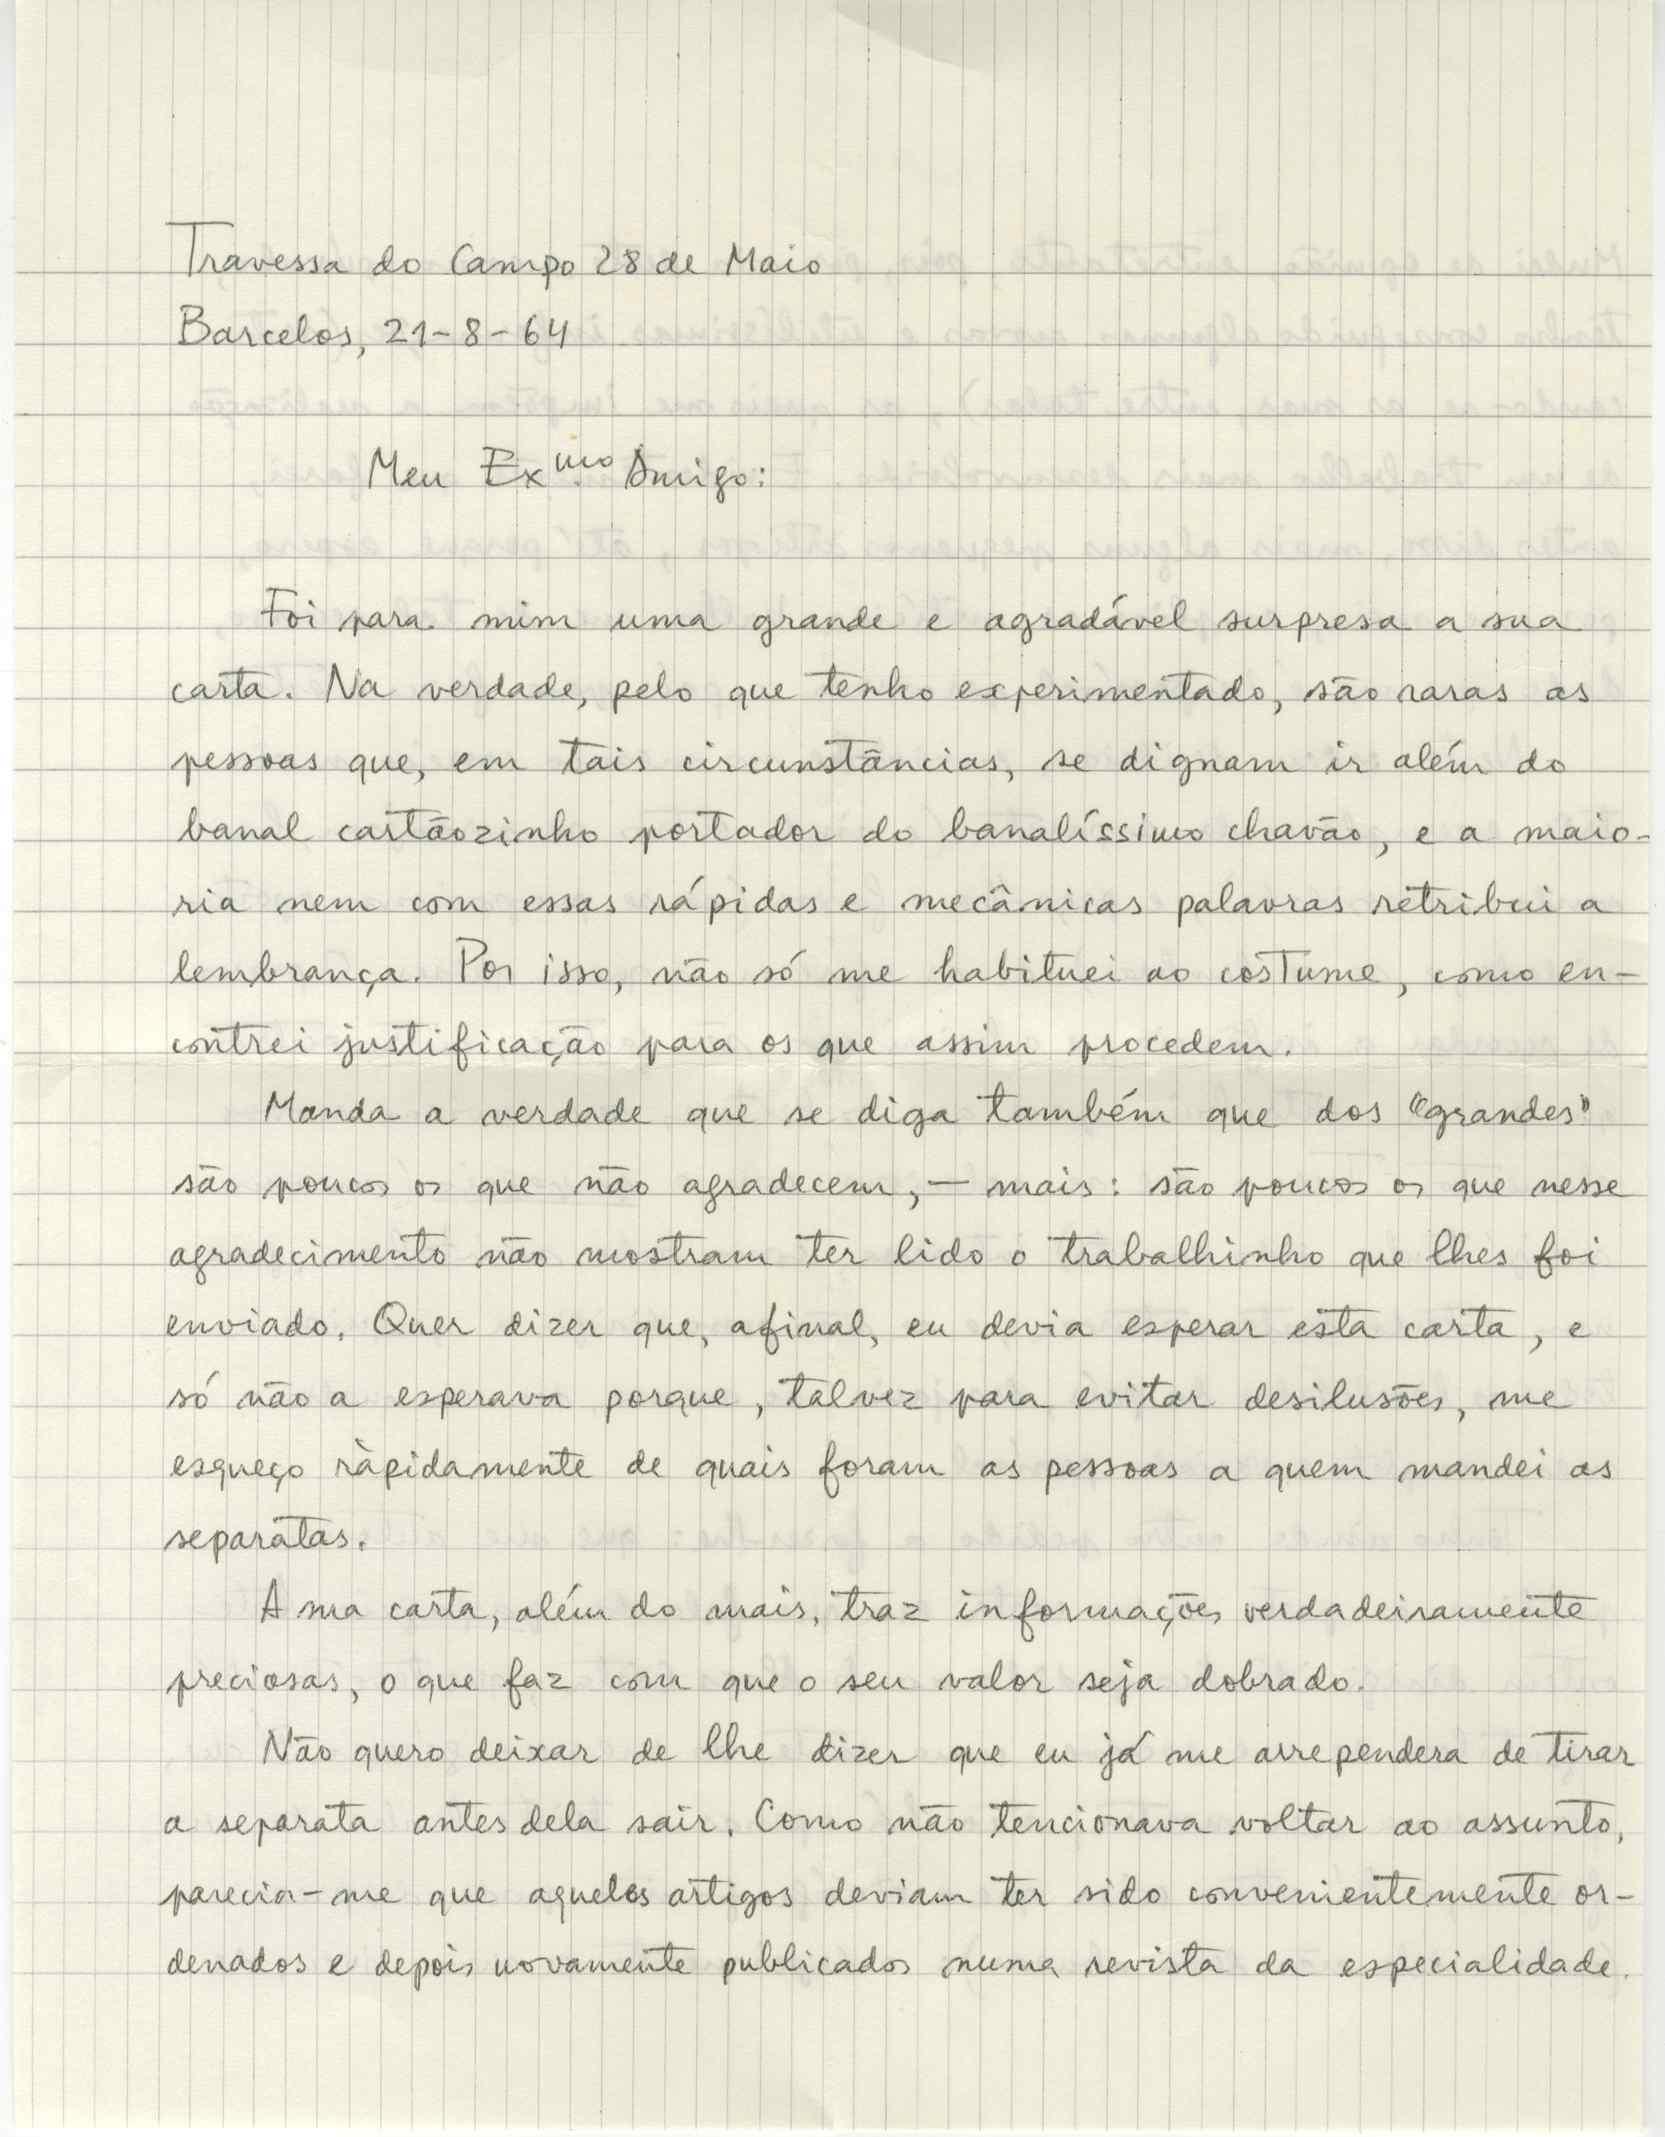 Travessa do Campo 28 de Maio
Barcelos, 21-8-64
Meu Exmo. Amigo:
Foi para mim uma grande e agradável surpresa a sua
carta. Na verdade, pelo que tenho experimentado, são raras as
pessoas que, em tais circunstâncias, se dignam ir além do
banal cartãozinho portador do banalíssimo chavão, e a maio-
ria nem com essas rápidas e mecânicas palavras retribui a
lembrança. Por isso, não só me habituei ao costume, como en-
contrei justificação para os que assim procedem.
Manda a verdade que se diga também que dos "grandes"
são poucos os que não agradecem, — mais: são poucos os que nesse
agradecimento não mostram ter lido o trabalhinho que lhes foi
enviado. Quer dizer que, afinal, eu devia esperar esta carta, e
só não a esperava porque, talvez para evitar desilusões, me
esqueço ràpidamente de quais foram as pessoas a quem mandei as
separatas.
A sua carta, além do mais, traz informações verdadeiramente
preciosas, o que faz com que o seu valor seja dobrado.
Não quero deixar de lhe dizer que eu já me arrependera de tirar
a separata antes dela sair. Como não tencionava voltar ao assunto,
parecia-me que aqueles artigos deviam ter sido convenientemente or-
denados e depois novamente publicados numa revista da especialidade.